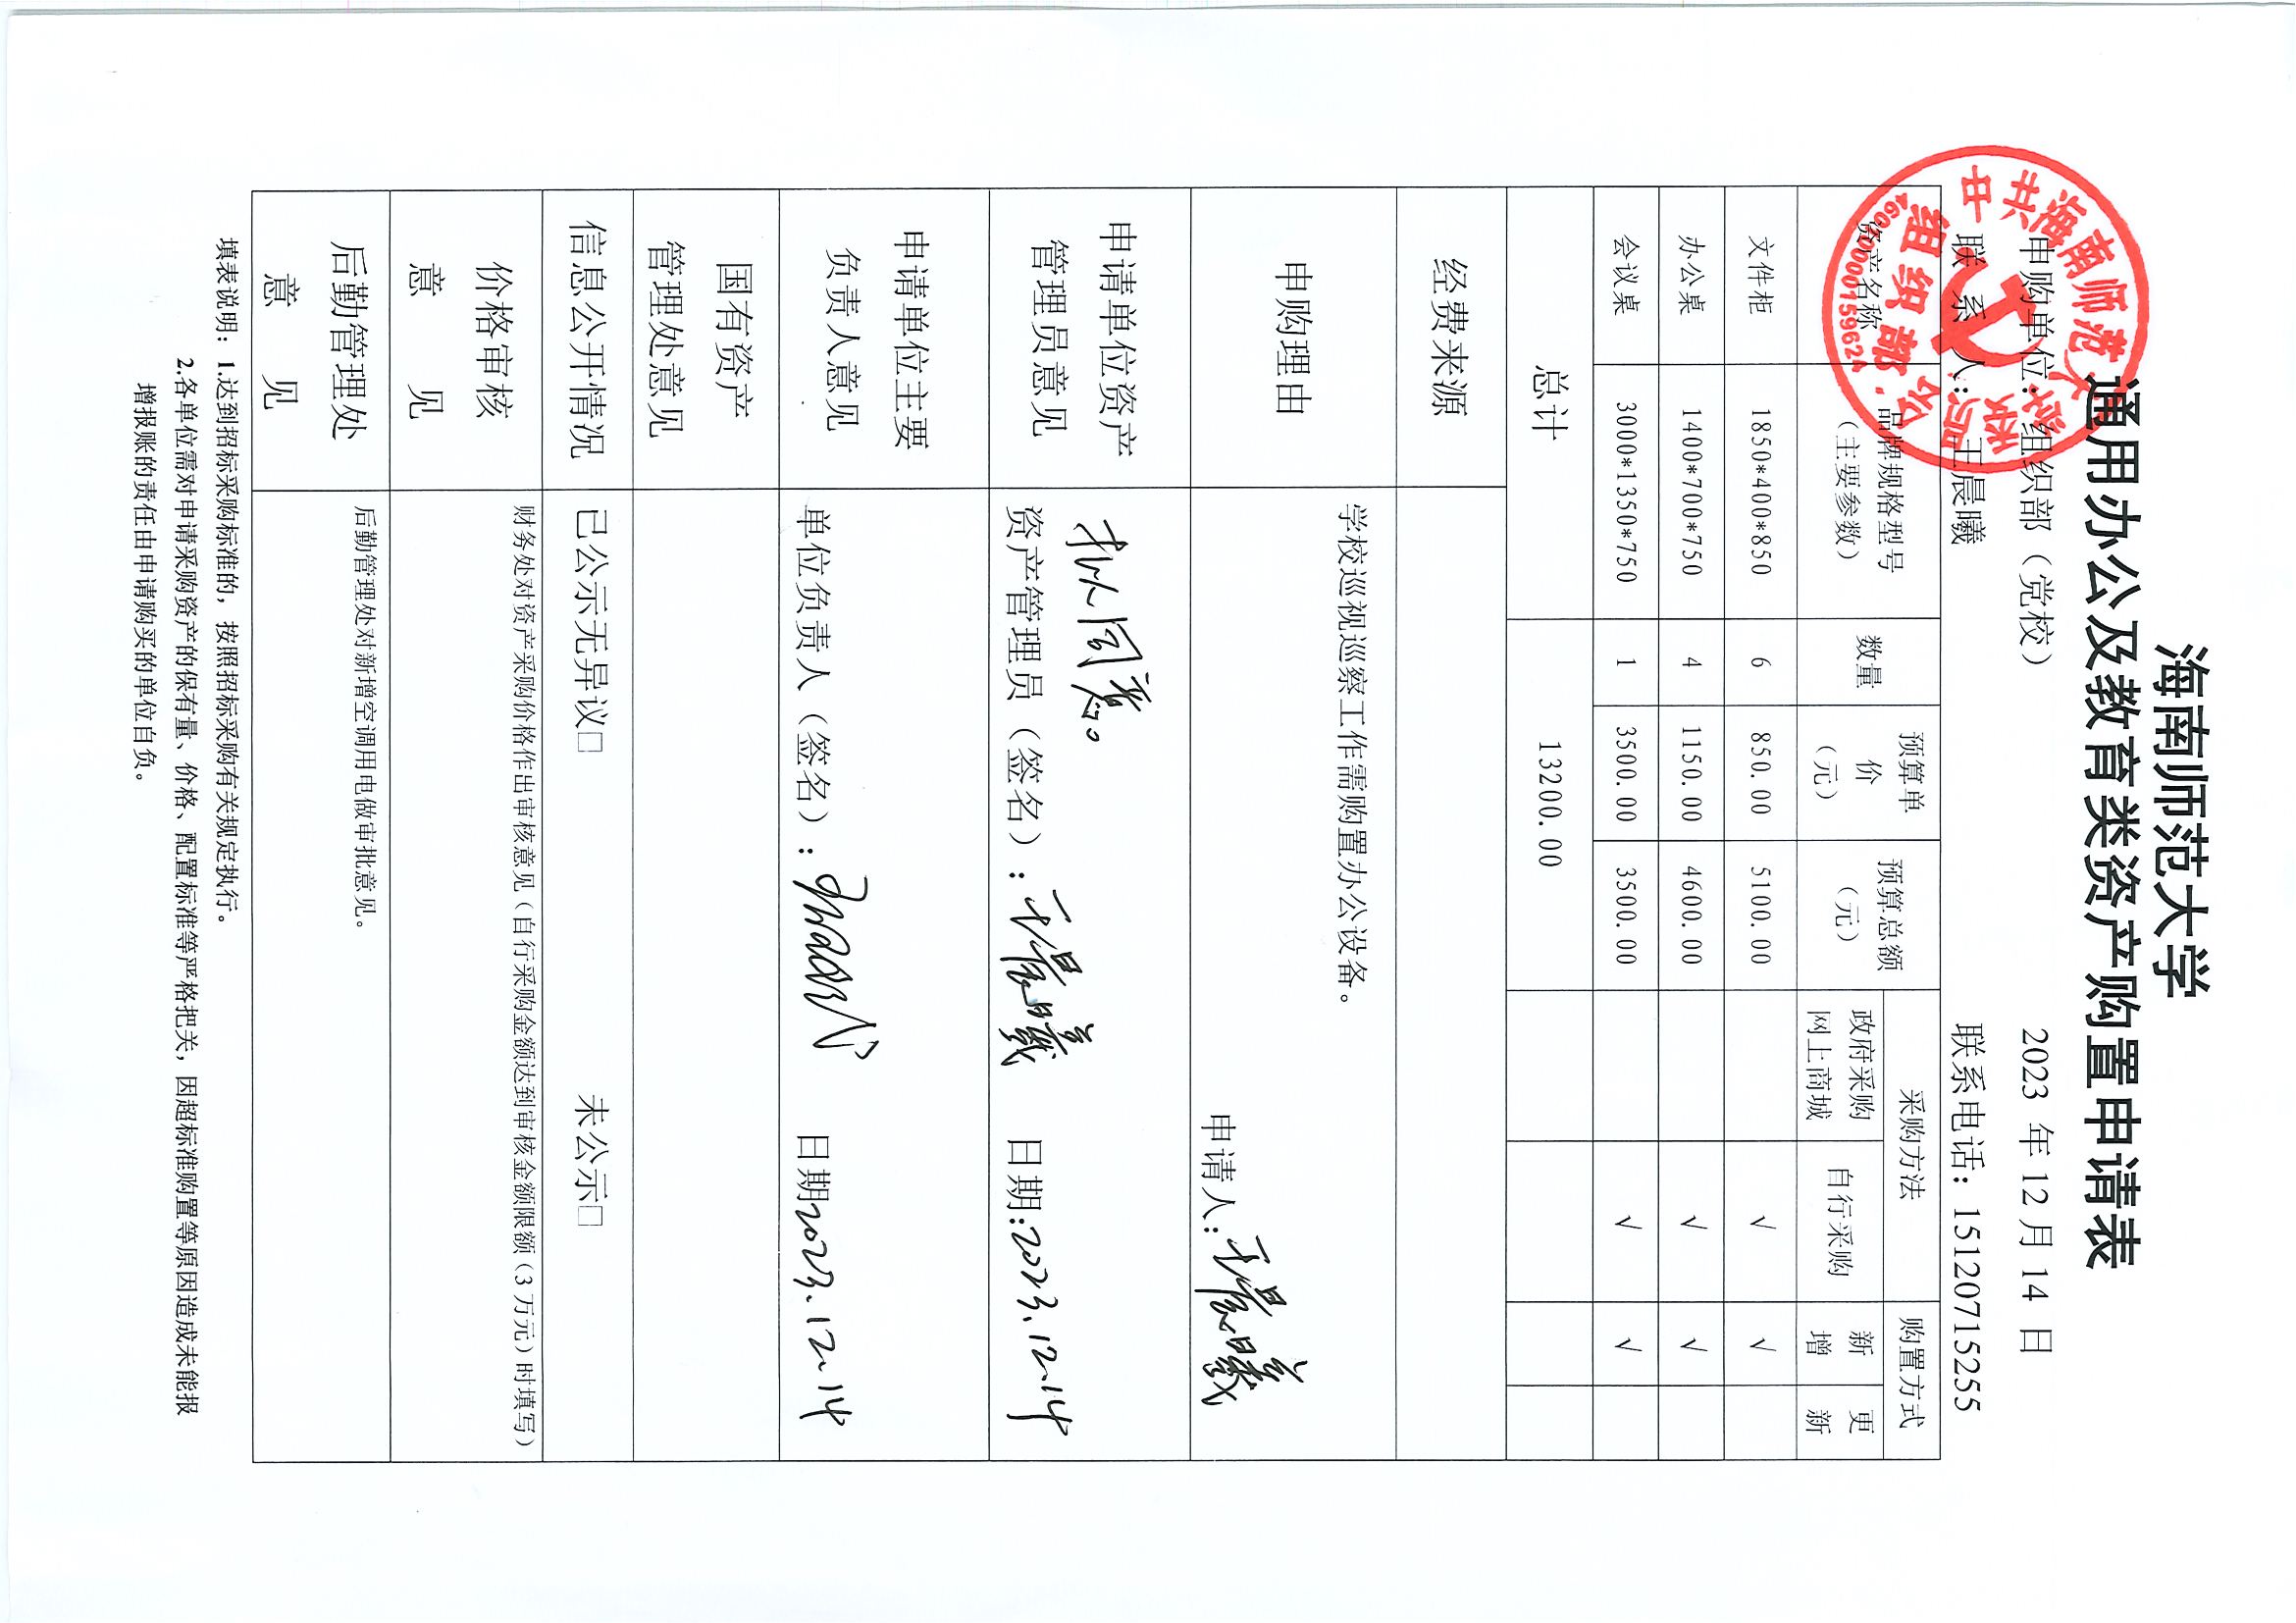 海南师范大学
通用办公及教育类资产购置申请表
申购单位：组织部（党校） 2023 年 12 月 14 日
联 系 人：王晨曦 联系电话：15120715255
中共海南师范大学
组织部
4602000159624
资产名称 品牌规格型号（主要参数） 数量 预算单价（元） 预算总额（元） 采购方法 购置方式
政府采购网上商城 自行采购 新增 更新
文件柜 1850*400*850 6 850.00 5100.00 √ √
办公桌 1400*700*750 4 1150.00 4600.00 √ √
会议桌 3000*1350*750 1 3500.00 3500.00 √ √
总计 13200.00
经费来源
申购理由 学校巡视巡察工作需购置办公设备。
申请人：王晨曦
申请单位资产管理员意见 拟同意。
资产管理员（签名）：王晨曦 日期:2023.12.14
申请单位主要负责人意见 单位负责人（签名）： 日期2023.12.14
国有资产管理处意见
信息公开情况 已公示无异议□ 未公示□
价格审核意 见 财务处对资产采购价格作出审核意见（自行采购金额达到审核金额限额（3 万元）时填写）
后勤管理处意 见 后勤管理处对新增空调用电做审批意见。
填表说明：1.达到招标采购标准的，按照招标采购有关规定执行。
2.各单位需对申请采购资产的保有量、价格、配置标准等严格把关，因超标准购置等原因造成未能报
增报账的责任由申请购买的单位自负。